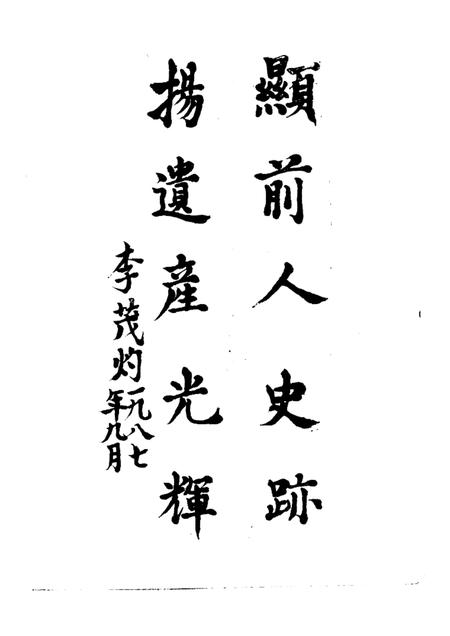 顯前人史跡
揚遺產光輝
李茂灼一九八七
年九月